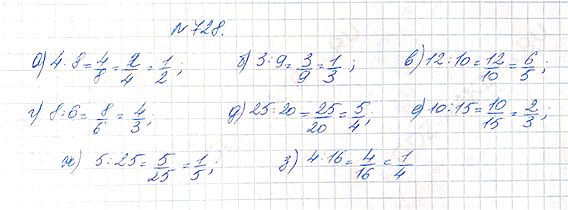 № 728.
а) 4 : 8 = 4/8 = 2/4 = 1/2 ; б) 3 : 9 = 3/9 = 1/3 ; в) 12 : 10 = 12/10 = 6/5 ;
г) 8 : 6 = 8/6 = 4/3 ; д) 25 : 20 = 25/20 = 5/4 ; е) 10 : 15 = 10/15 = 2/3 ;
ж) 5 : 25 = 5/25 = 1/5 ; з) 4 : 16 = 4/16 = 1/4